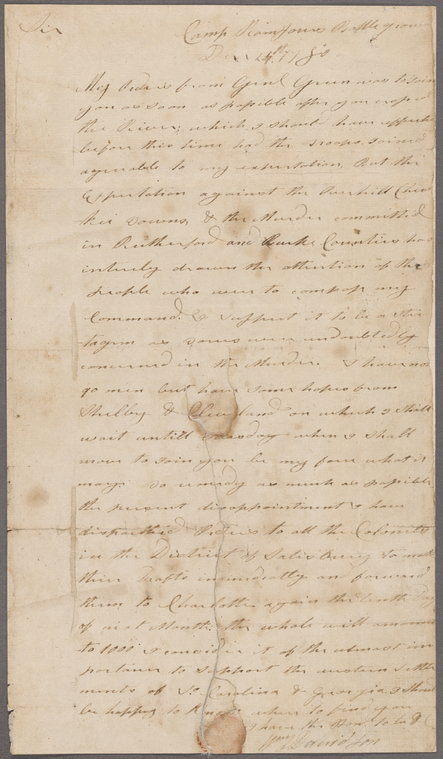 Sir
Camp Ramsours
Decr 1780
My Orders from Genl Green was to join
you as soon as possible after you crossed
the River; which I should have effected
before this time had the troops joined
agreeable to my expectation. But the
Expedition against the Cher
kee Towns, & the Murder committed
in Rutherford and Burke Counties has
intirely drawn the attention of the
People who were to compose my
Command. I suppose it to be a Stra
tagem as were undoubtedly
concerned in the Murder. I have now
90 men but have some hopes from
Shelby & Cleveland on which I shall
wait untill when I shall
move to join you be my force what it
may. To remedy as much as possible
the present disappointment I have
dispatched Orders to all the Colonels
in the District of Salisbury to make
their Drafts immediately and forward
them to Charlotte again the tenth Day
of next Month; the whole will amount
to 1000 I consider it of the utmost im
portance to support the western Settle
ments of So Carolina & Georgia I should
be happy to Know when to find you
I have the Honr to be &
Wm Davidson